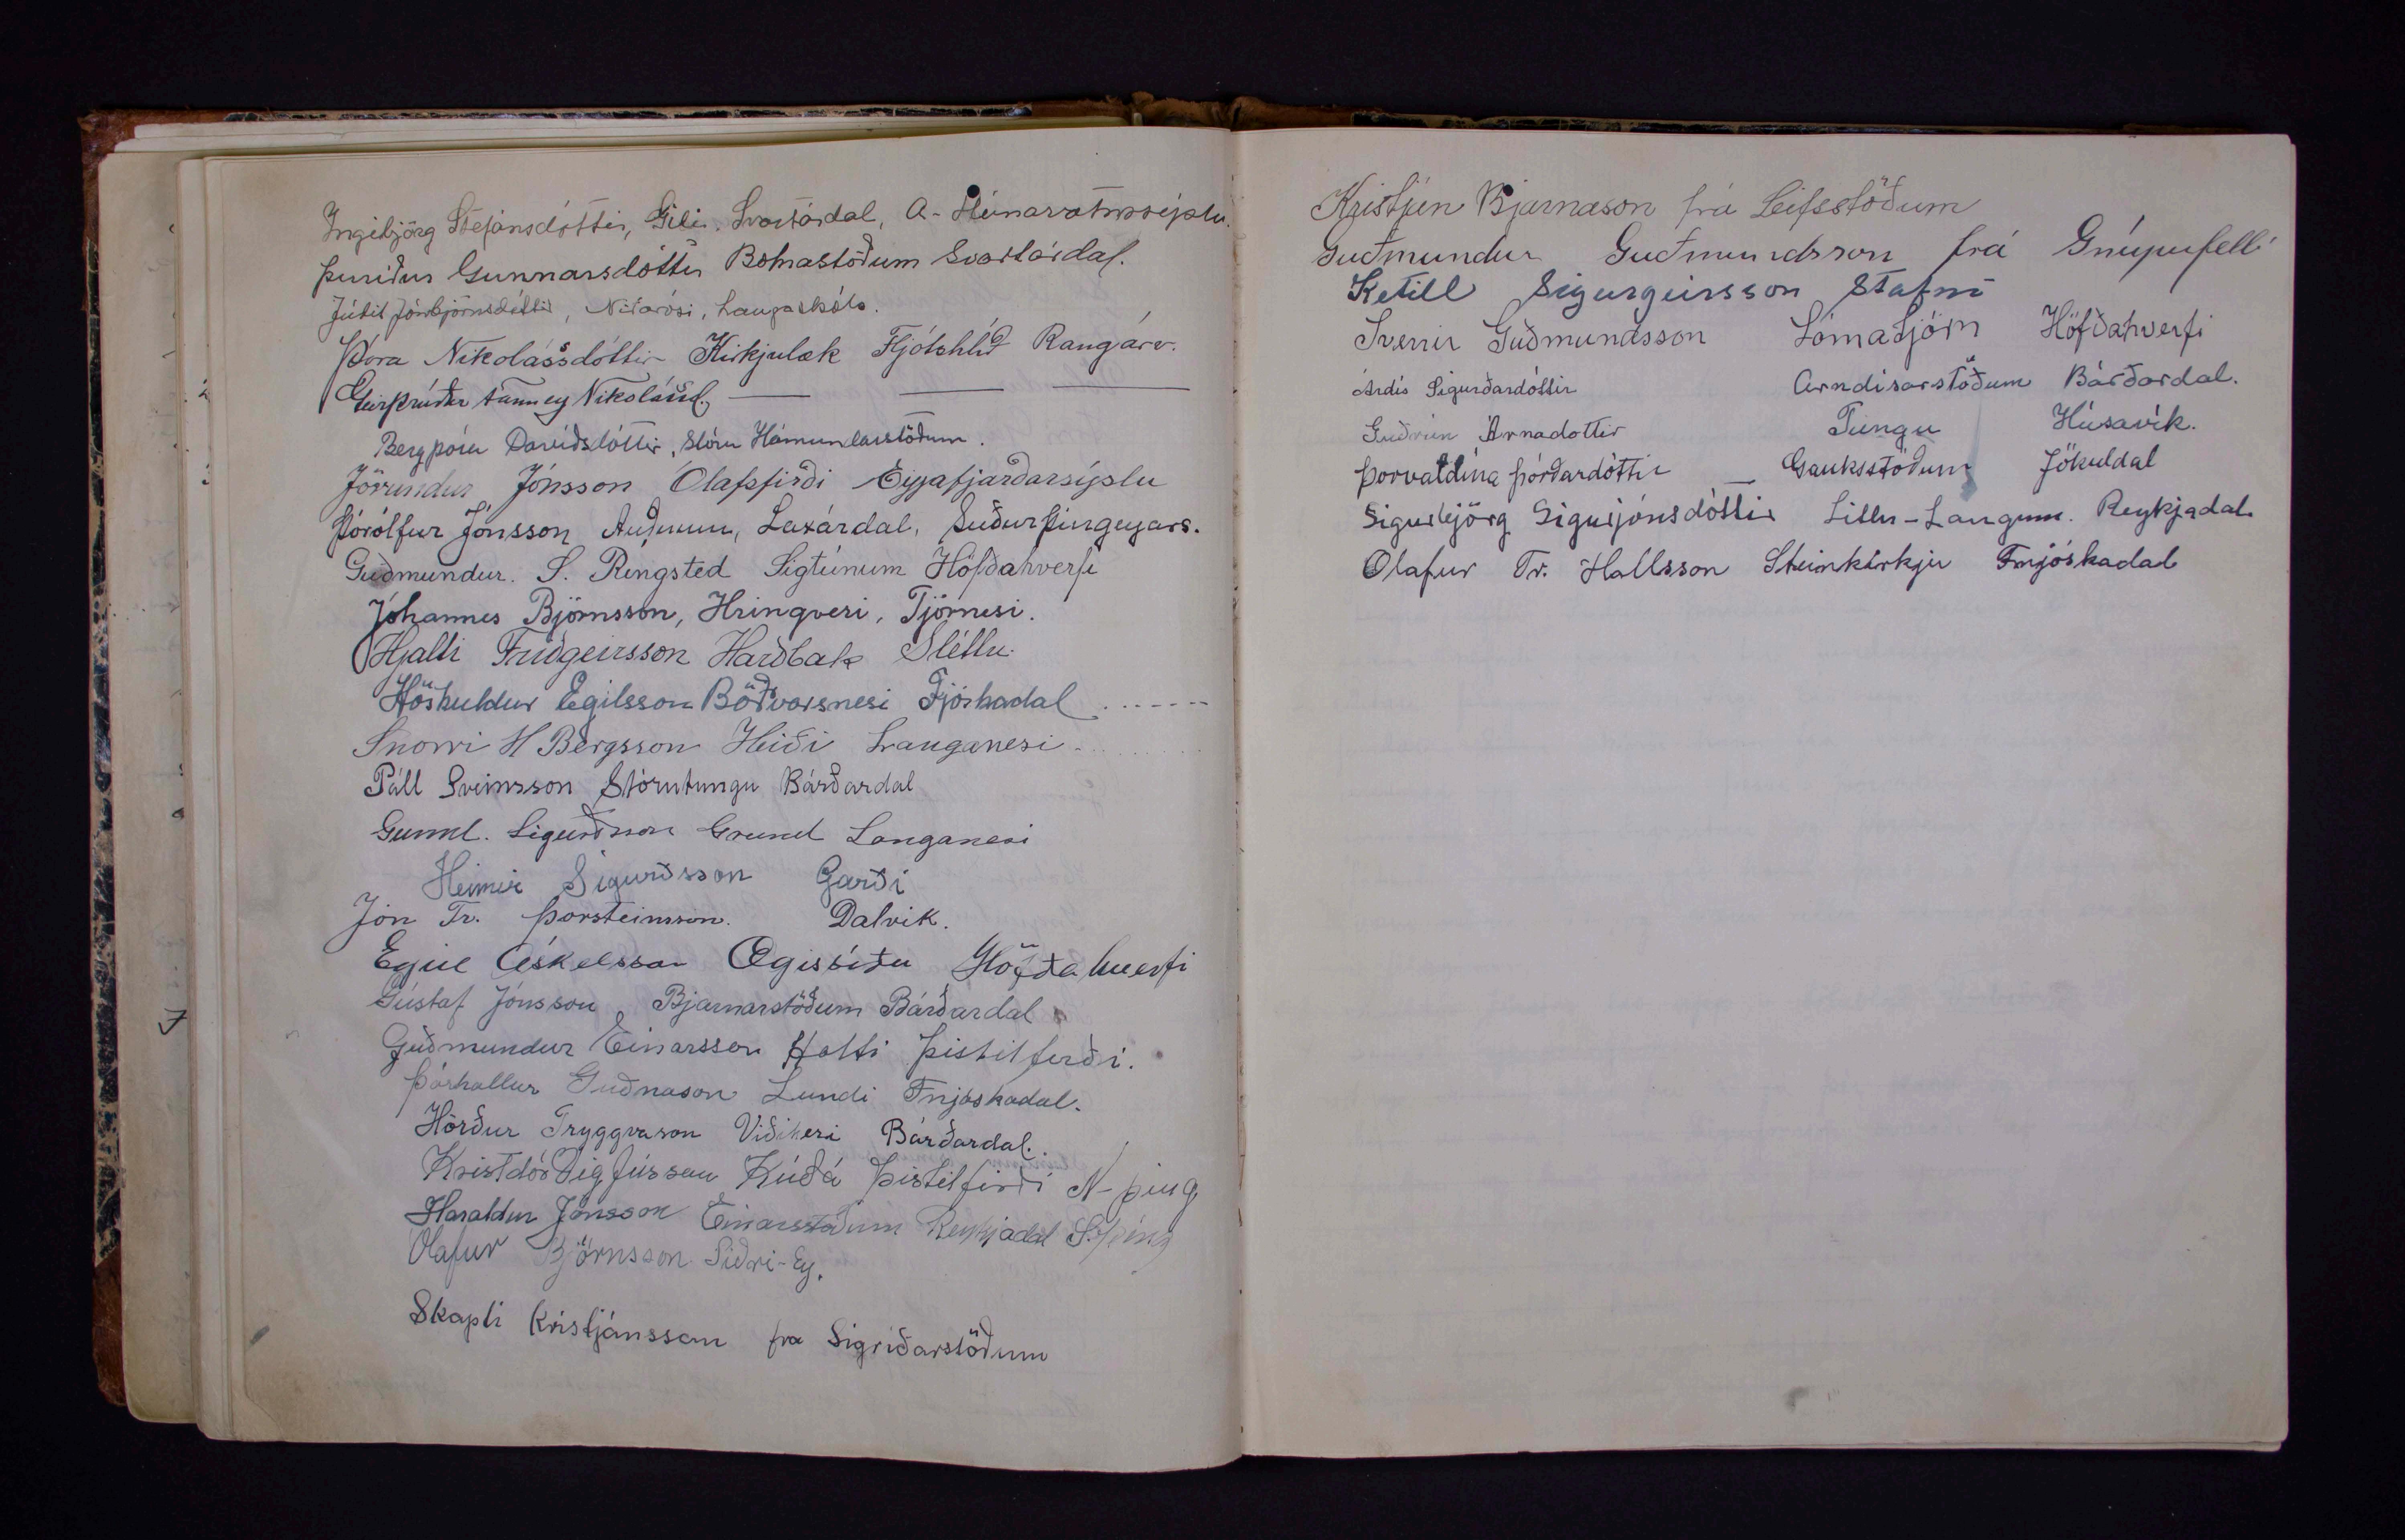 Ingibjörg Stefánsdóttir, Gili. Svartárdal, A-Húnavatnssýslu.
Þuríður Gunnarsdóttir Botnastöðum Svartárdal.
Júdit Jónbjörnsdóttir, Niðarósi, Laugaskóla.
Þóra Nikolássdóttir Kirkjulæk Fljótshlíð Rangárv.
Geirþrúður Fanney Nikolásd. — — —
Bergþóra Davíðsdóttir, Stóru Hámundarstöðum.
Jörundur Jónsson Ólafsfirði Eyjafjarðarsýslu
Þórólfur Jónsson Auðnum, Laxárdal, Suðurþingeyars.
Guðmundur. S. Ringsted Sigtúnum Höfðahverfi
Jóhannes Björnsson, Hringveri, Tjörnesi.
Hjalti Friðgeirsson Harðbak Sléttu.
Höskuldur Egilsson Böðvarsnesi Fjóskadal .......
Snorri H Bergsson Heiði Langanesi.........
Páll Sveinsson Stórutungu Bárðardal
Gunnl. Sigurðsson Grund Langanesi
Heimir Sigurðsson Garði
Jón Tr. Þorsteinsson. Dalvík.
Egill Áskelsson Ægissíðu Höfðahverfi
Gústaf Jónsson, Bjarnarstöðum Bárðardal
Guðmundur Einarsson Holti Þistilfirði.
Þórhallur Guðnason Lundi Fnjóskadal.
Hörður Tryggvason Víðikeri Bárðardal.
Kristdór Vigfússon Kúðá Þistilfirði N-þing
Haraldur Jónsson Einarsstöðum Reykjadal S.þing
Ólafur Björnsson Siðri-Ey.
Skapti Kristjánsson frá Sigríðarstöðum
Kristján Bjarnason frá Leifsstöðum
Guðmundur Guðmundsson frá Gnúpufelli
Ketill Sigurgeirsson Stafni
Sverrir Guðmundsson Lómatjörn Höfðahverfi
Árdís Sigurðardóttir Arndísarstöðum Bárðardal.
Guðrún Árnadottir Tungu Húsavík.
Þorvaldína Þórðardóttir — Gauksstöðum Jökuldal
Sigurbjörg Sigurjónsdóttir Litlu-Laugum. Reykjadal.
Olafur Tr. Hallsson Steinkirkju Fnjóskadal